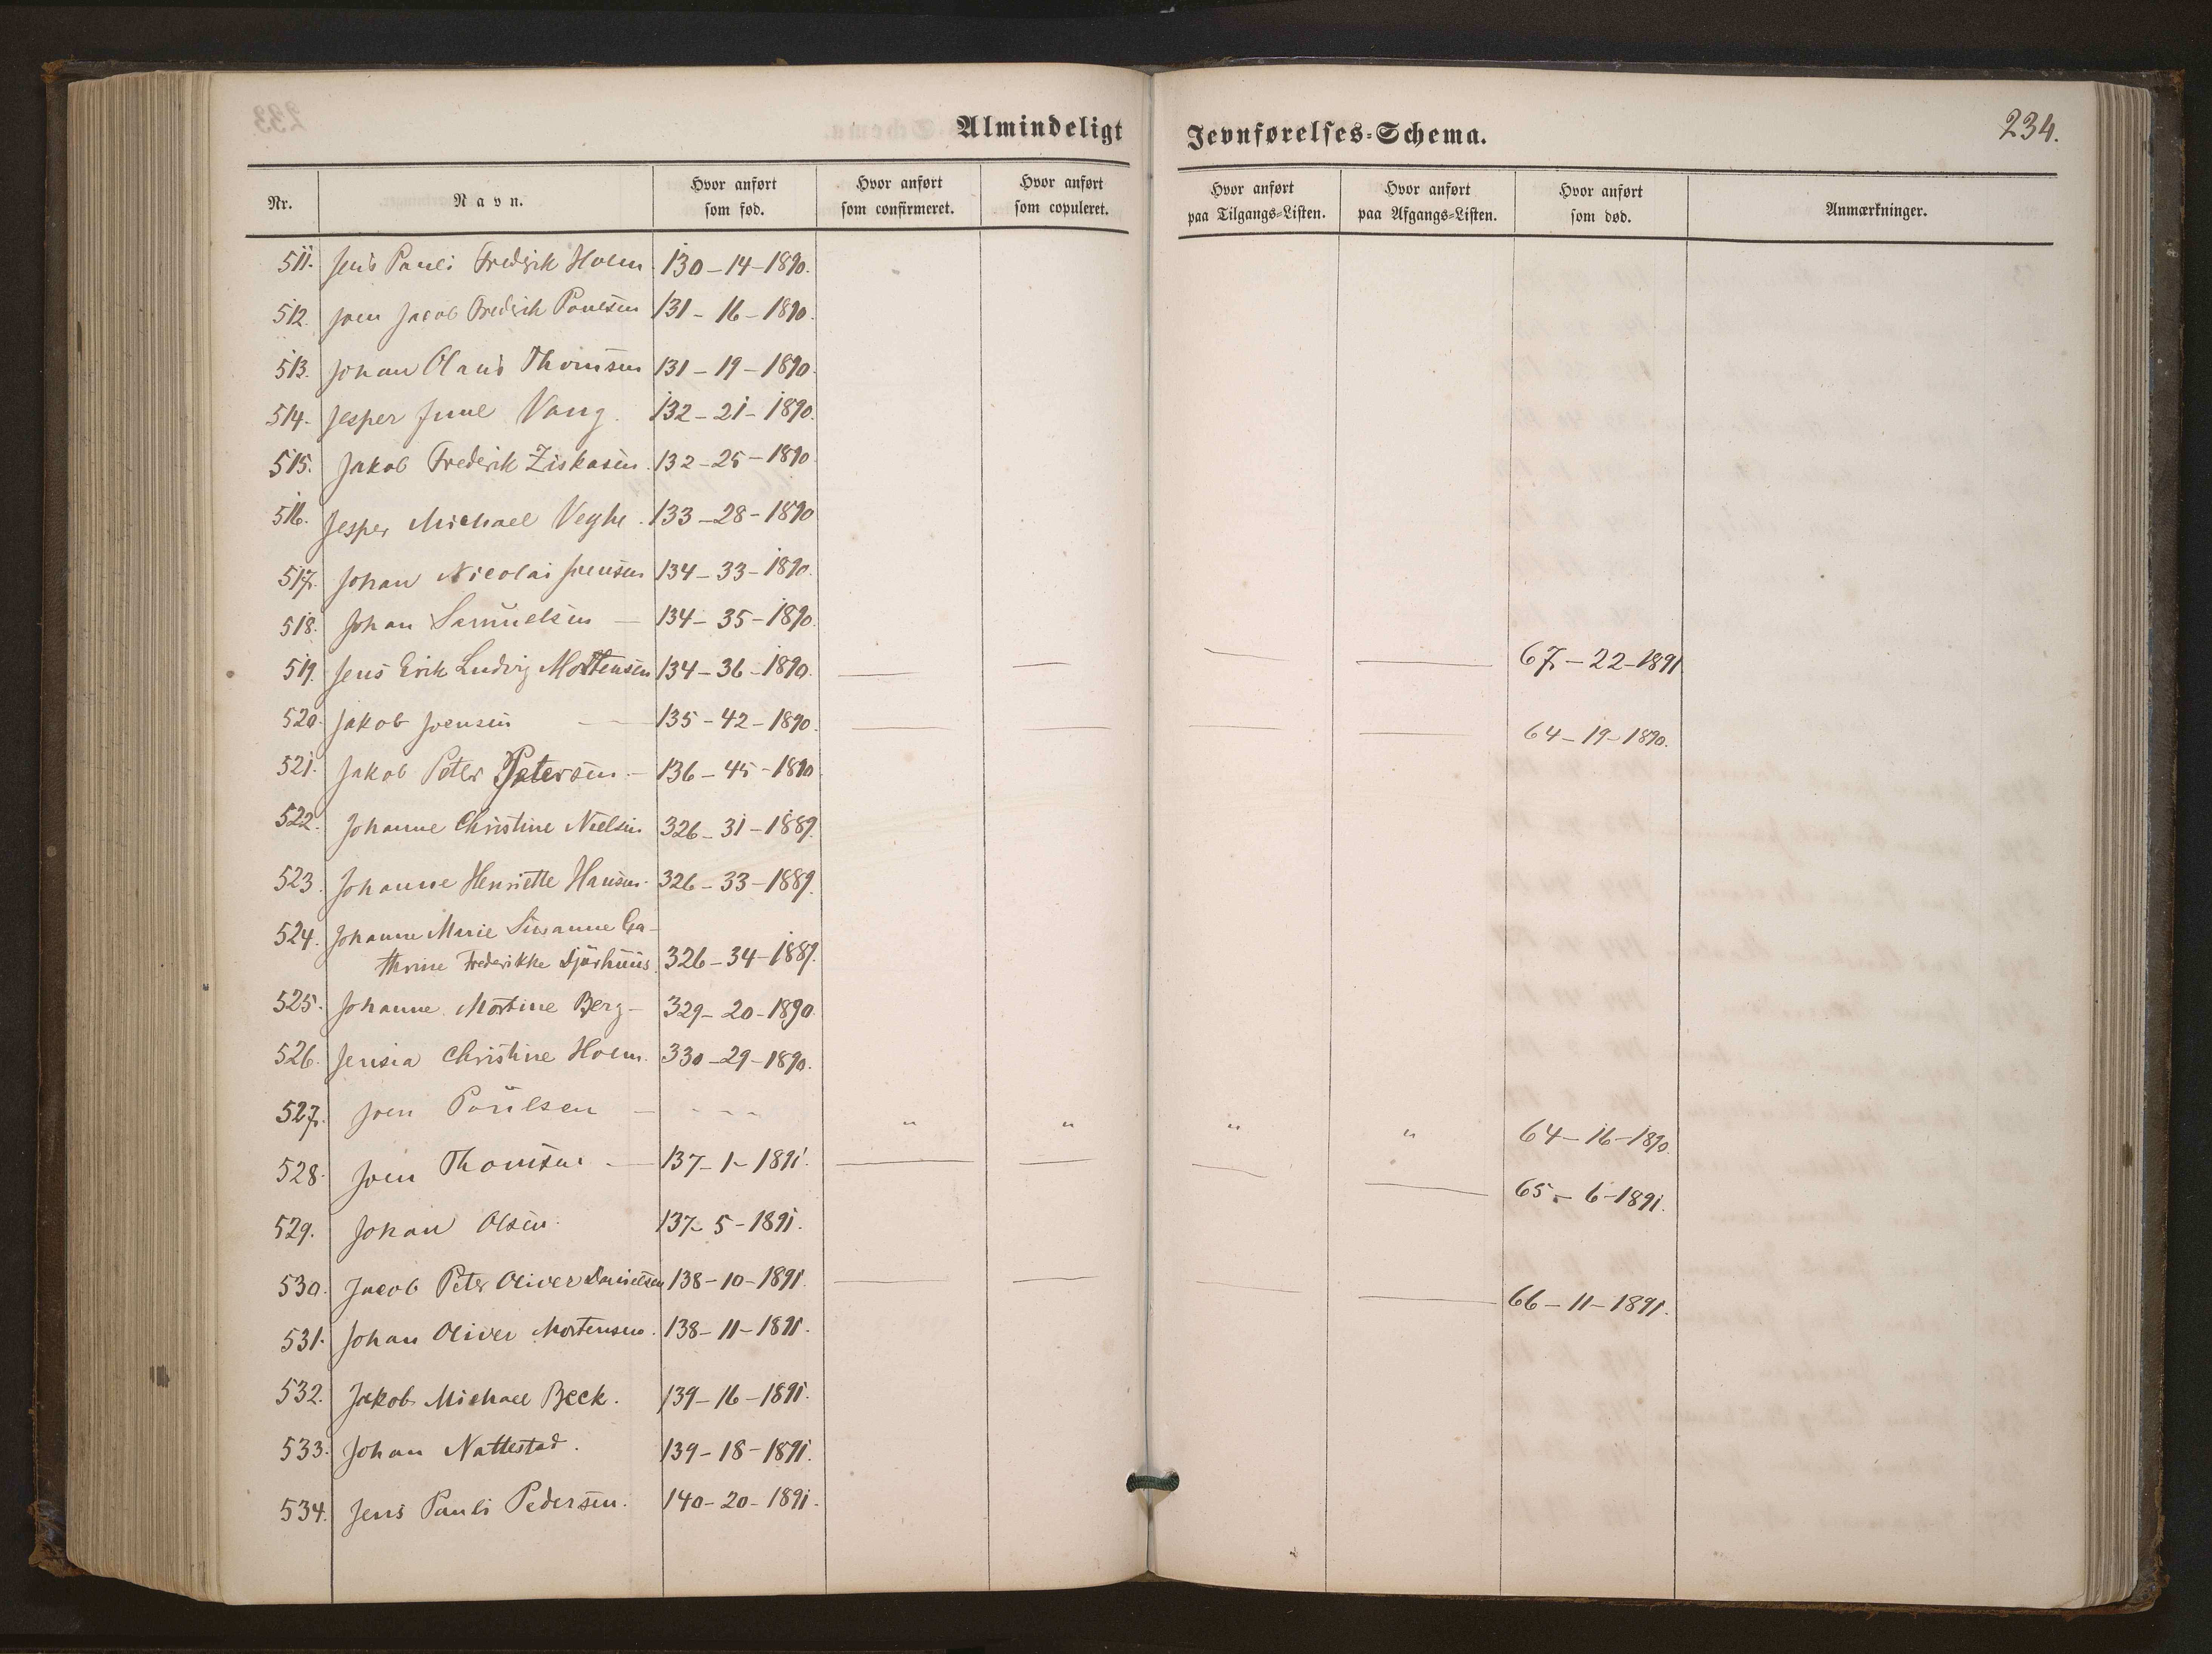 Almindeligt Jevnførelses-Schema. 234.
Nr. Navn. Hvor anført som fød. Hvor anført som confirmeret. Hvor anført som copuleret. Hvor anført paa Tilgangs-Listen. Hvor anført paa Afgangs-Listen. Hvor anført som død. Anmærkninger.
511. Jens Pauli Fredrik Holm 130-14-1890.
512. Joen Jacob Fredrik Poulsen 131-16-1890.
513. Johan Olaus Thomsen 131-19-1890.
514. Jesper Juul Vang. 132-21-1890.
515. Jakob Frederik Ziskasen. 132-25-1890
516. Jesper Michael Veyhe. 133-28-1890
517. Johan Nicolai Joensen 134-33-1890.
518. Johan Samuelsen — 134-35-1890.
519. Jens Erik Ludvig Mortensen 134-36-1890. — — — — 67-22-1891.
520. Jakob Joensen — 135-42-1890. — — — — 64-19-1890.
521. Jakob Peter Petersen. — 136-45-1890
522. Johanne Christine Nielsen 326-31-1889.
523. Johanne Henriette Hansen. 326-33-1889.
524. Johanne Marie Susanne Ca-
thrine Frederikke Djurhuus. 326-34-1889.
525. Johanne Mortine Berg — 329-20-1890.
526. Jensia Christine Holm. 330-29-1890.
527. Joen Poulsen — - - - " " " " 64-16-1890.
528. Joen Thomsen — 137-1-1891. — — — — 65-6-1891.
529. Johan Olsen. 137-5-1891.
530. Jacob Peter Oliver Danielsen 138-10-1891. — — — — 66-11-1891.
531. Johan Oliver Mortensen. 138-11-1891.
532. Jakob Michael Beck. 139-16-1891.
533. Johan Nattestad. 139-18-1891.
534. Jens Pauli Pedersen. 140-20-1891.